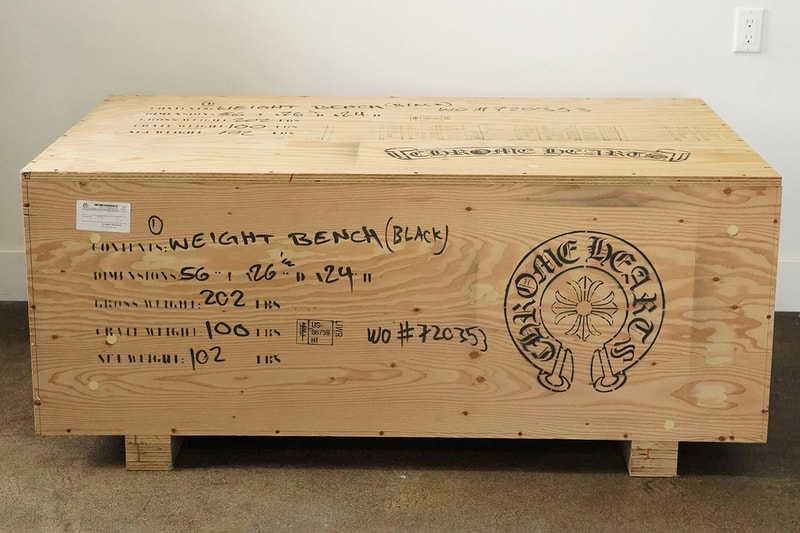 ① CONTENTS: WEIGHT BENCH (BLACK)
DIMENSIONS 56 " L x 26 " D x 24 H
GROSS WEIGHT: 202 LBS
CRATE WEIGHT: 100 LBS
NET WEIGHT: 102 LBS
WO # 720353
CHROME HEARTS
① CONTENTS: WEIGHT BENCH (BLACK)
DIMENSIONS: 56 " L x 26 " W D x 24 H
GROSS WEIGHT: 202 LBS
CRATE WEIGHT: 100 LBS
US-
HT
LWR
WO #720353
NET WEIGHT: 102 LBS
CHROME HEARTS